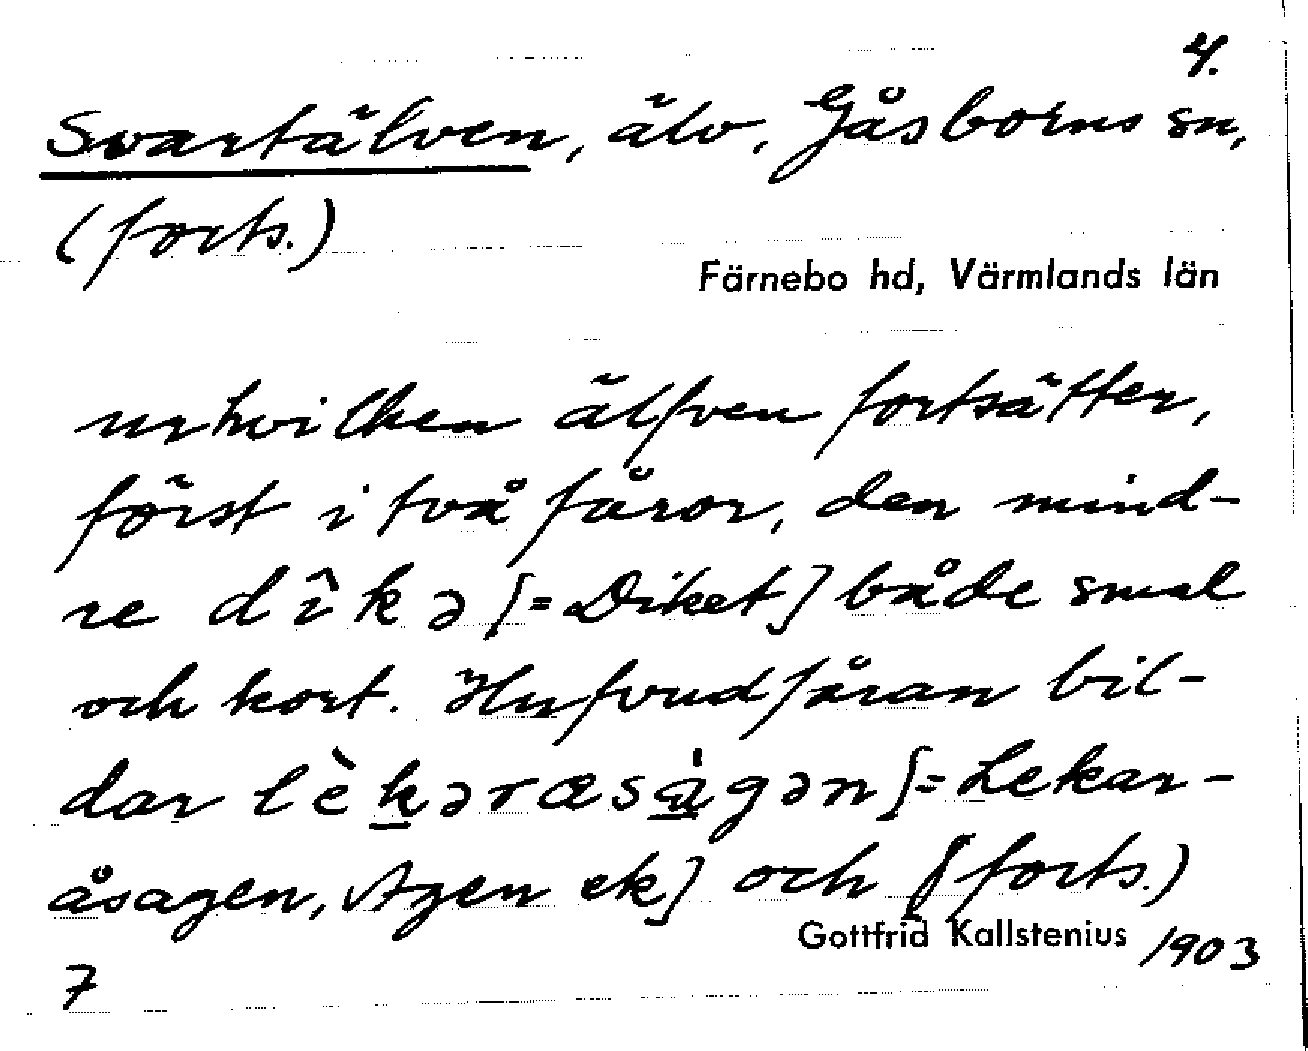 4.
Svartälven, älv, Gåsborns sn,
(forts.)
Färnebo hd, Värmlands län
urhvilken älfven fortsätter,
först i två fåror, den mind-
re dîkə [= Diket] både smal
och kort. Hufvudfåran bil-
dar lèkəræságən [= Lekar-
åsagen, Agen ek] och (forts.)
Gottfrid Kallstenius 1903
7